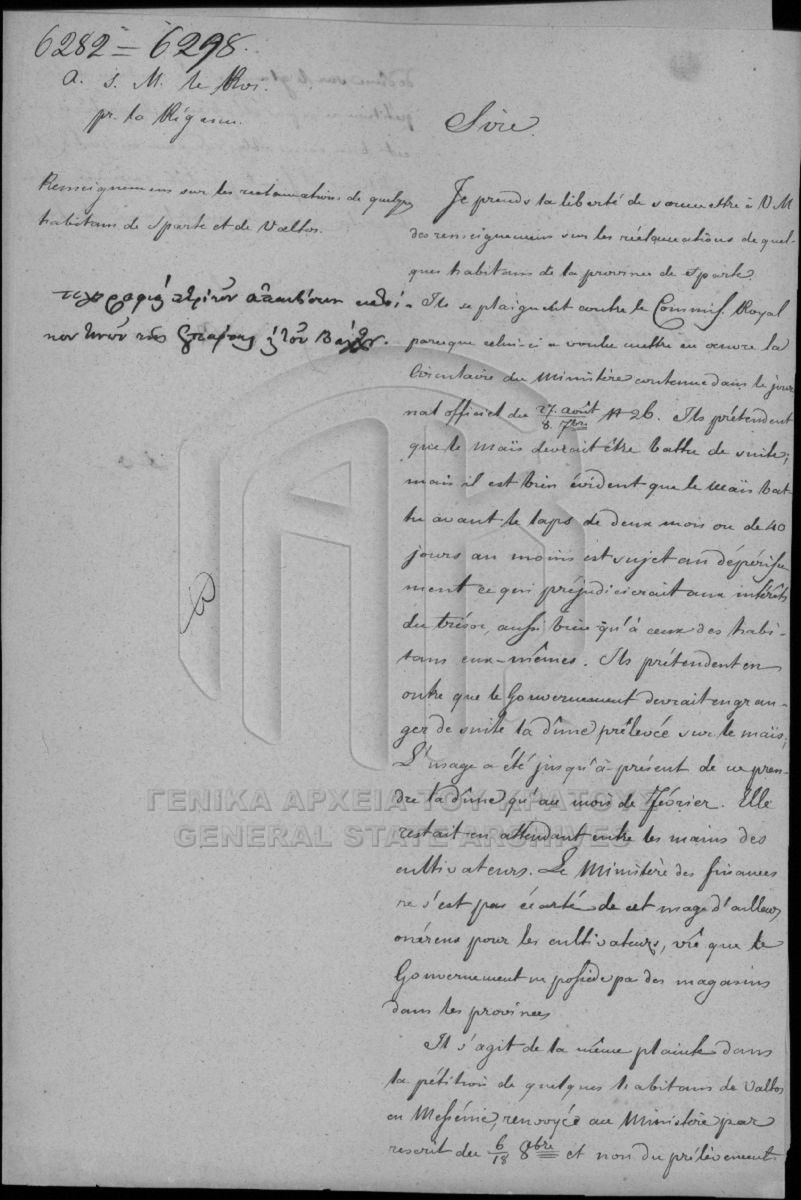 6282 = 6298.
A. S. M. le Roi.
pr. la Régence
Sire.
Renseignemens sur les réclamations de quelques
habitans de Sparte et de Valtos.
Je prends la liberté de soumettre à V M
des renseignemens sur les réclamations de quel-
ques habitans de la province de Sparte.
Ils se plaignent contre le Commiss. Royal
parceque celui-ci a voulu mettre en oeuvre la
Circulaire du Ministère contenue dans le jour
nal officiel du 27. août / 8. 7bre N 26. Ils prétendent
que le maïs devrait être battu de suite;
mais il est bien évident que le maïs bat-
tu avant le laps de deux mois ou de 40
jours au moins est sujet au dépérisse
ment ce qui préjudicierait aux intérêts
du trésor, aussi bien qu'à ceux des habi-
tans eux-mêmes. Ils prétendent en
outre que le Gouvernement devrait engran-
ger de suite la dîme prélevée sur le maïs;
L'usage a été jusqu'à-présent de ne pren-
dre la dîme qu'au mois de Février. Elle
restait en attendant entre les mains des
cultivateurs. Le Ministère des finances
ne s'est pas écarté de cet usage d'ailleurs
onéreux pour les cultivateurs, vû que le
Gouvernement ne possède pas des magasins
dans les provinces
Il s'agit de la même plainte dans
la pétition de quelques habitans de Valtos
en Messénie, renvoyée au Ministère par
rescrit du 6/18 8bre et non du prélèvement
ΓΕΝΙΚΑ ΑΡΧΕΙΑ ΤΟΥ ΚΡΑΤΟΥΣ
GENERAL STATE ARCHIVES